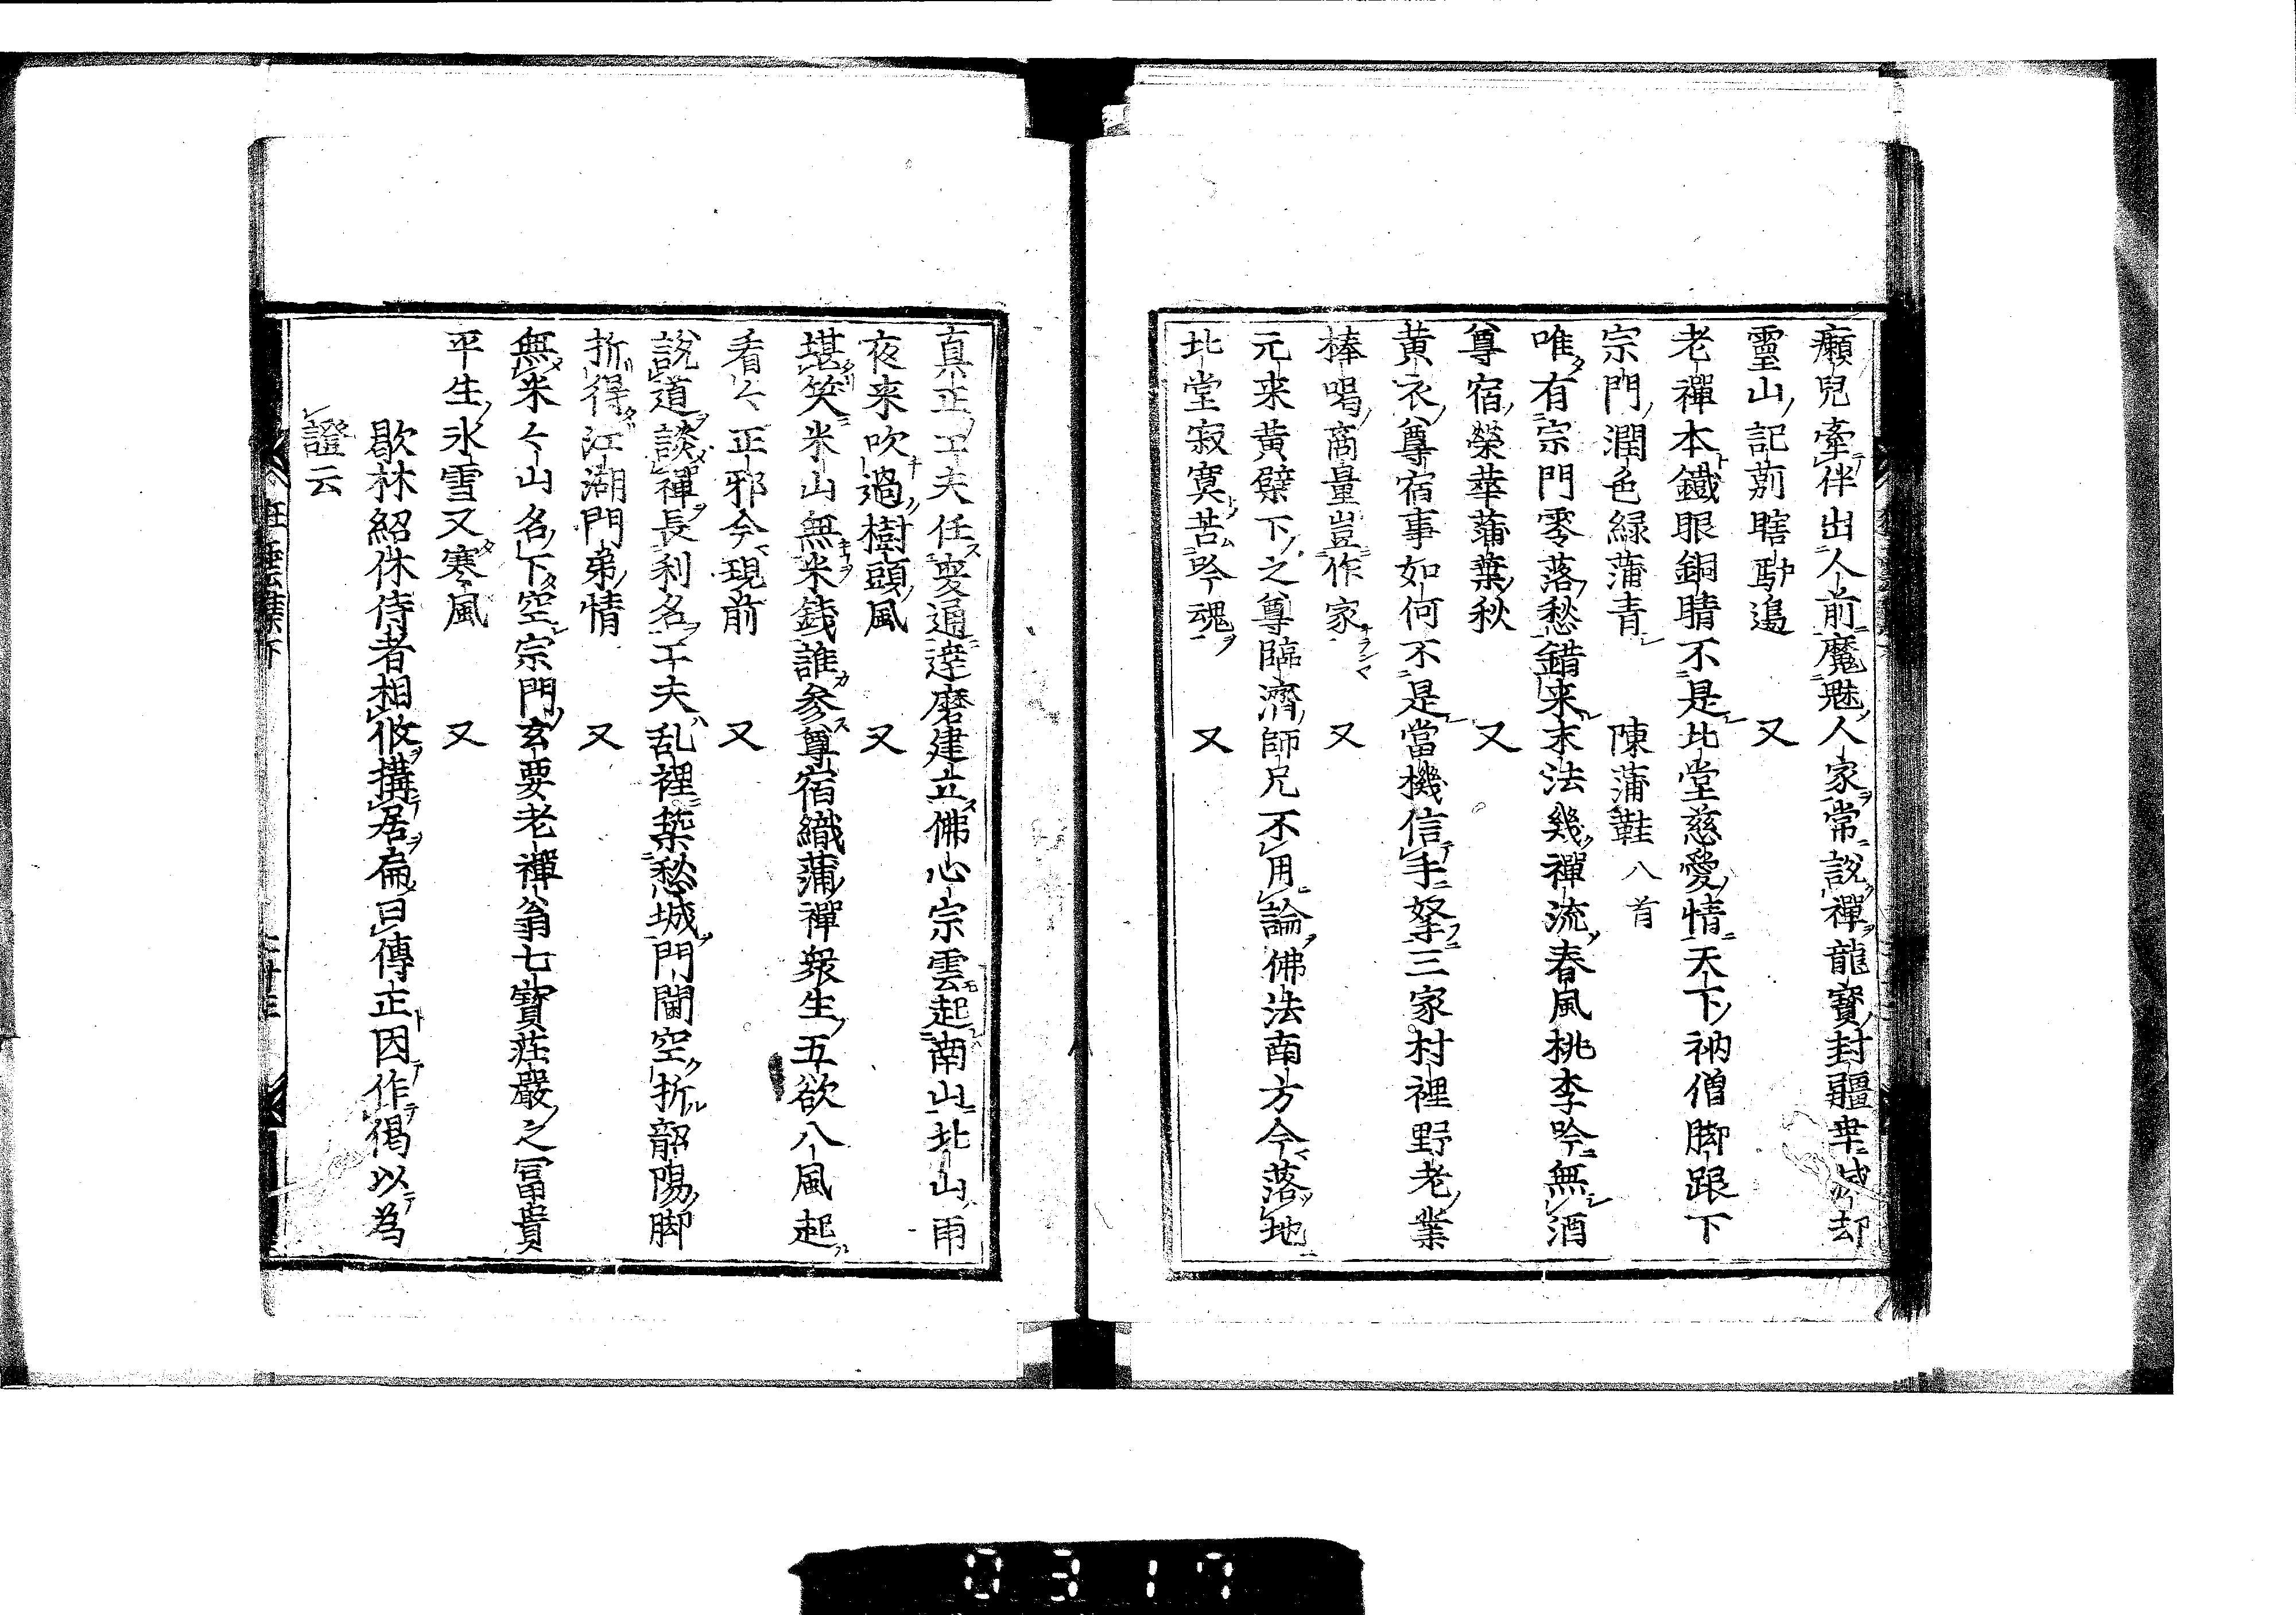 癩兒牽伴出人前魔魅人家常說禪龍寶封疆畢減却
靈山記莂瞎馿邊　又
老禪本鐵眼銅睛不是北堂慈愛情天下衲僧脚跟下
宗門潤色緑蒲青　陳蒲鞋八首
唯有宗門零落愁錯来末法幾禪流春風桃李吟無酒
尊宿榮華蒲葉秋　又
黃衣尊宿事如何不是當機信手拏三家村裡野老業
棒喝商量豈作家　又
元来黃檗下之尊臨濟師兄不用論佛法南方今落地
北堂寂寞苦吟魂　又
真正工夫任變通達磨建立佛心宗雲起南山北山雨
夜来吹過樹頭風　又
堪笑米山無米錢誰參尊宿織蒲禪衆生五欲八風起
看々正邪今現前　又
說道談禪長利名工夫乱裡築愁城門閫空折韶陽脚
折得江湖門弟情　又
無米々山名下空宗門玄要老禪翁七寶莊嚴之冨貴
平生氷雪又寒風　又
歇林紹休侍者相攸搆居扁曰傳正因作偈以為
證云
0317